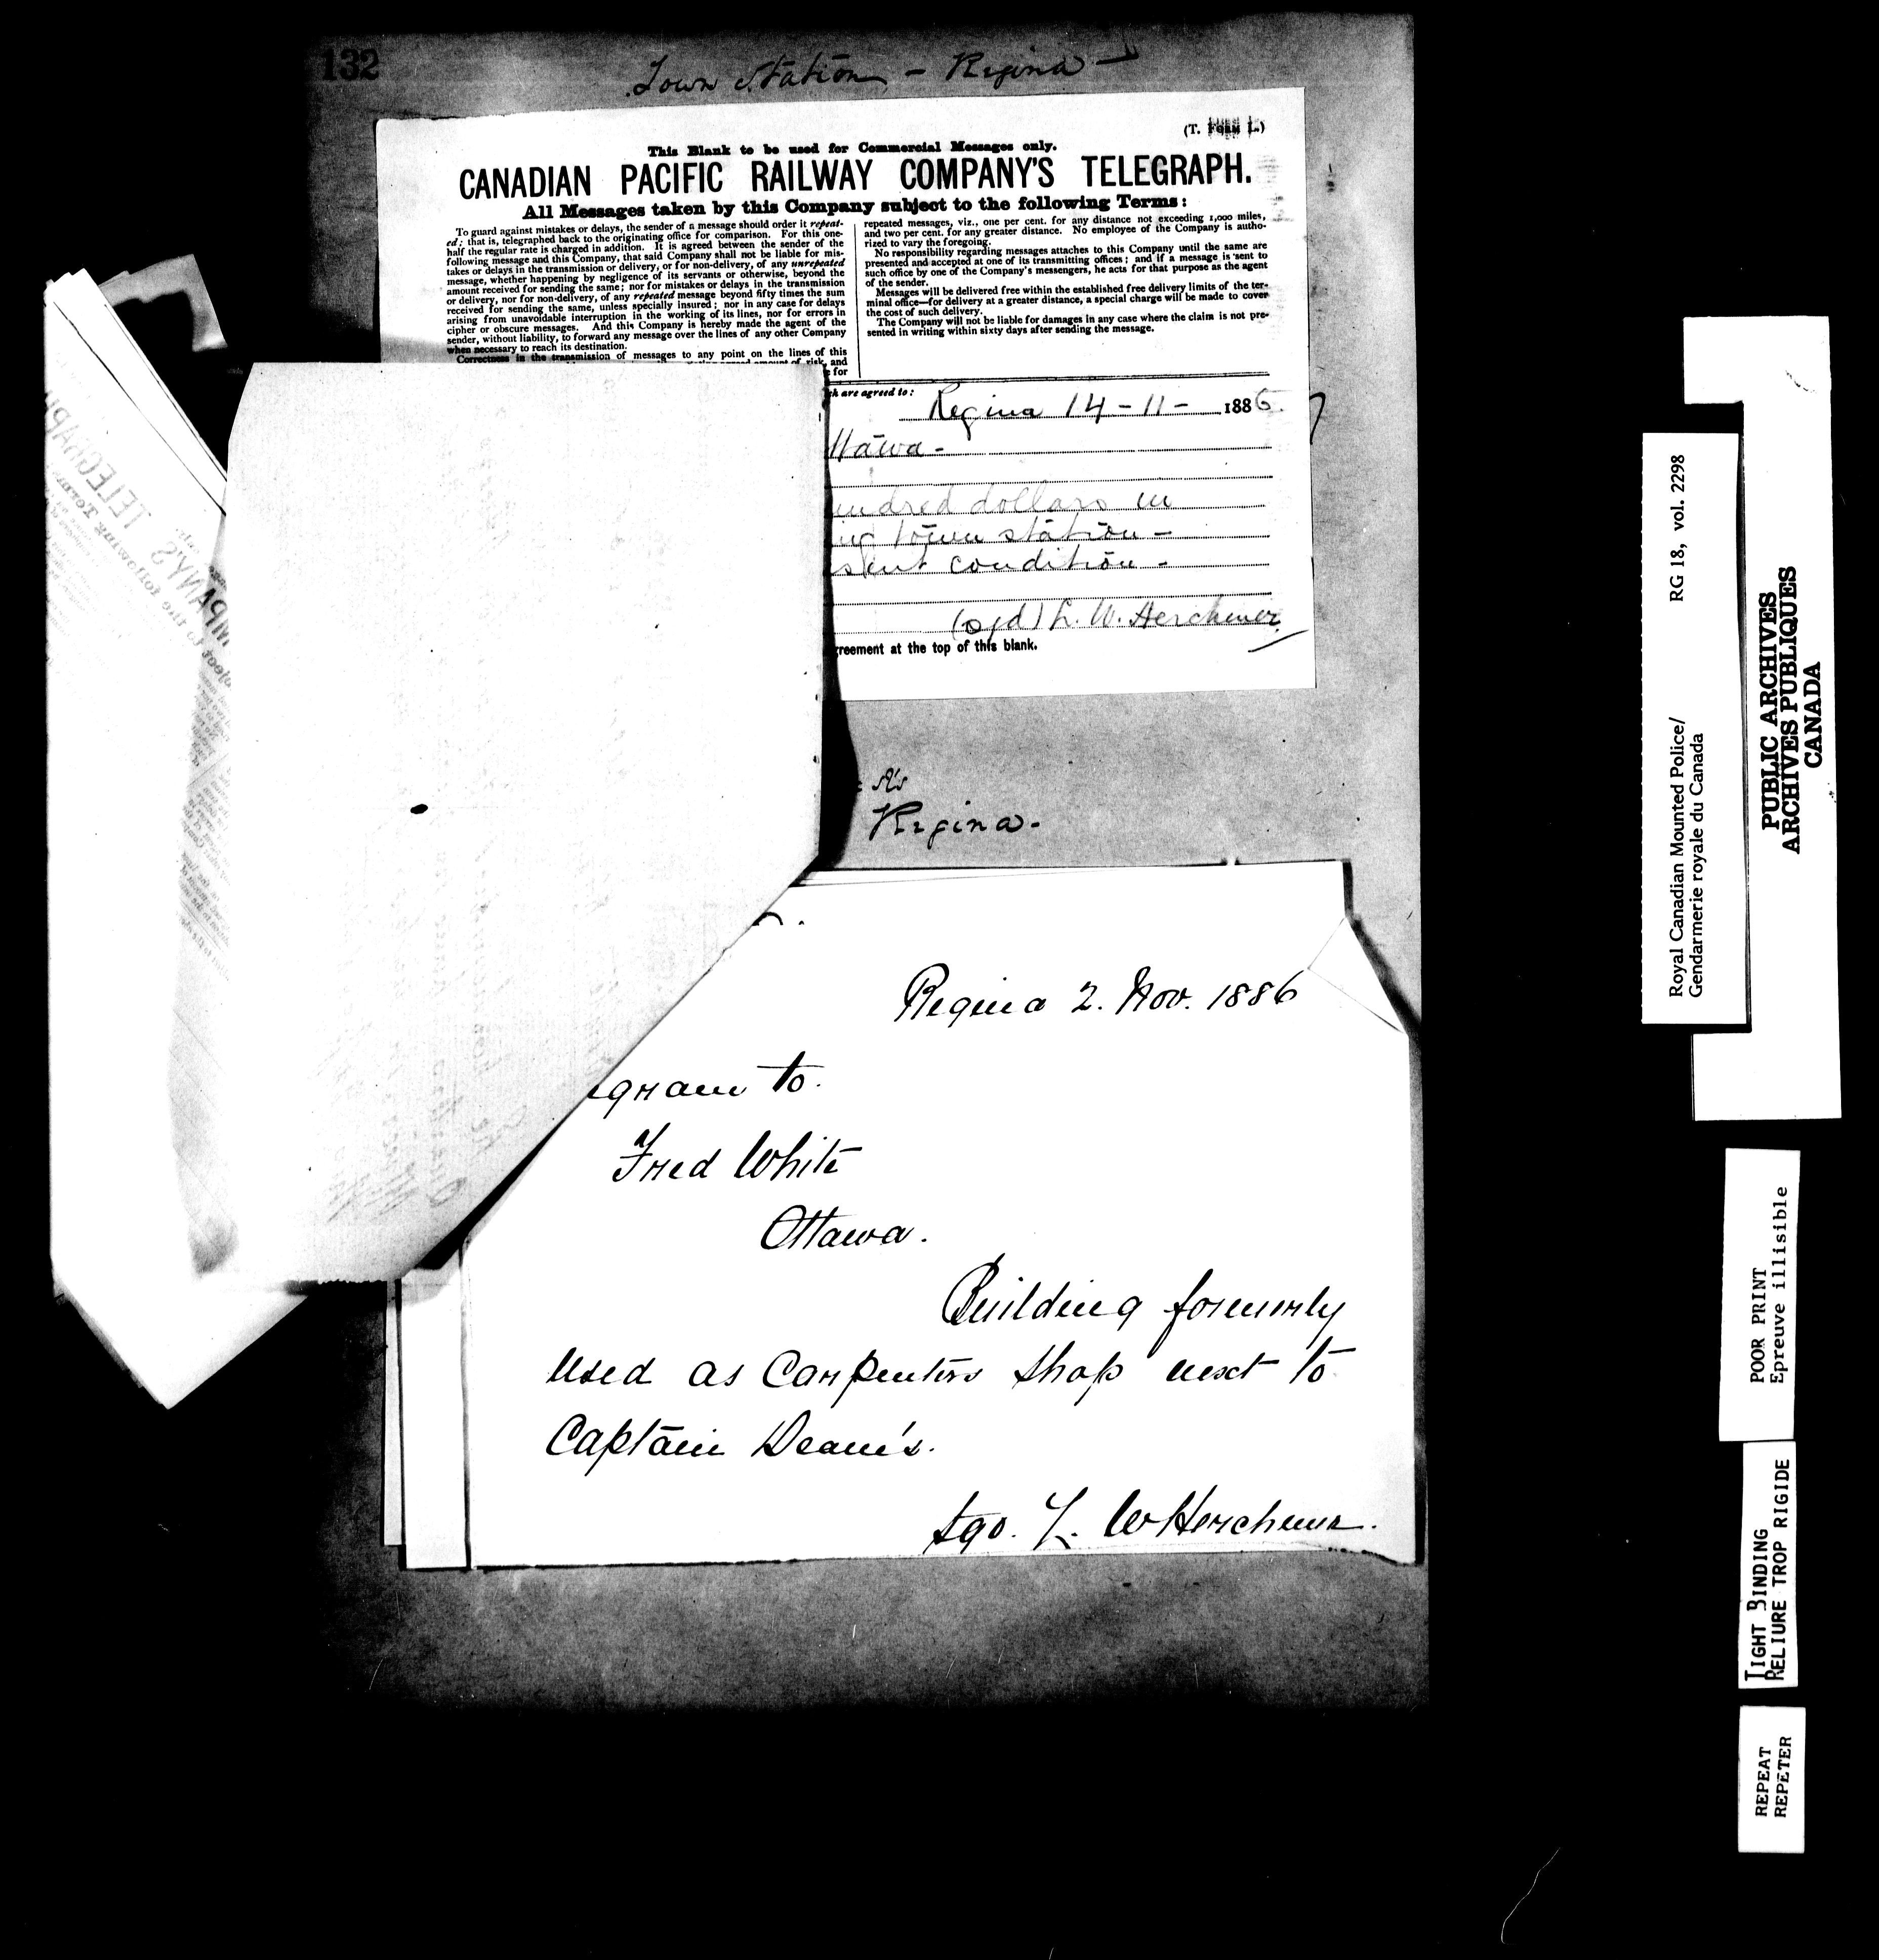 132
Town Station - Regina -
(T. Form L.)
This Blank to be used for Commercial Messages only.
CANADIAN PACIFIC RAILWAY COMPANY'S TELEGRAPH.
All Messages taken by this Company subject to the following Terms:
To guard against mistakes or delays, the sender of a message should order it repeat-
ed; that is, telegraphed back to the originating office for comparison. For this one-
half the regular rate is charged in addition. It is agreed between the sender of the
following message and this Company, that said Company shall not be liable for mis-
takes or delays in the transmission or delivery, or for non-delivery, of any unrepeated
message, whether happening by negligence of its servants or otherwise, beyond the
amount received for sending the same; nor for mistakes or delays in the transmission
or delivery, nor for non-delivery, of any repeated message beyond fifty times the sum
received for sending the same, unless specially insured; nor in any case for delays
arising from unavoidable interruption in the working of its lines, nor for errors in
cipher or obscure messages. And this Company is hereby made the agent of the
sender, without liability, to forward any message over the lines of any other Company
when necessary to reach its destination.
Correctness in the transmission of messages to any point on the lines of this
amount of risk, and
for
repeated messages, viz., one per cent. for any distance not exceeding 1,000 miles,
and two per cent. for any greater distance. No employee of the Company is autho-
rized to vary the foregoing.
No responsibility regarding messages attaches to this Company until the same are
presented and accepted at one of its transmitting offices; and if a message is sent to
such office by one of the Company's messengers, he acts for that purpose as the agent
of the sender.
Messages will be delivered free within the established free delivery limits of the ter-
minal office—for delivery at a greater distance, a special charge will be made to cover
the cost of such delivery.
The Company will not be liable for damages in any case where the claim is not pre-
sented in writing within sixty days after sending the message.
are agreed to:
Regina 14-11- 1886.
ttawa -
undred dollars in
ing town station -
sent condition -
(sgd) L. W. Herchmer
reement at the top of this blank.
Regina -
Regina 2. Nov. 1886
gram to
Fred White
Ottawa.
Building formerly
used as Carpenters shop next to
Captain Deane's.
sgd. L. W Herchmer.
RG 18, vol. 2298
Royal Canadian Mounted Police/
Gendarmerie royale du Canada
PUBLIC ARCHIVES
ARCHIVES PUBLIQUES
CANADA
POOR PRINT
Epreuve illisible
TIGHT BINDING
RELIURE TROP RIGIDE
REPEAT
REPETER